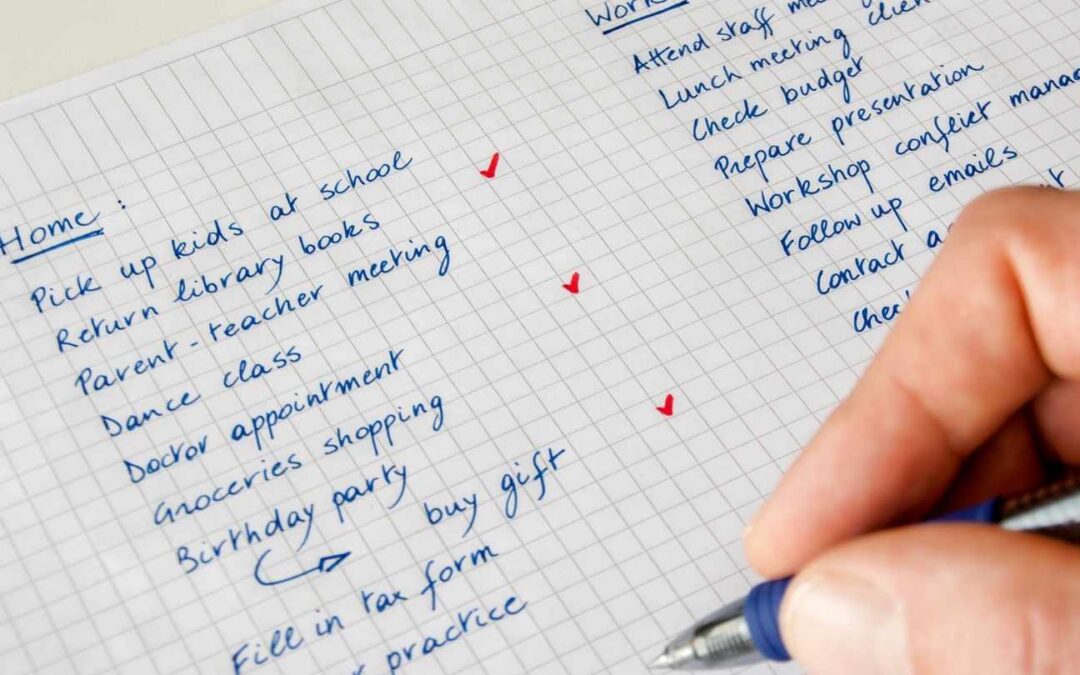 Home :
Pick up kids at school
Return library books
Parent-teacher meeting
Dance class
Doctor appointment
Groceries shopping
Birthday party
buy gift
Fill in tax form
practice
Work
Attend staff
Lunch meeting
Check budget
Prepare presentation
Workshop conflict
Follow up emails
Contact